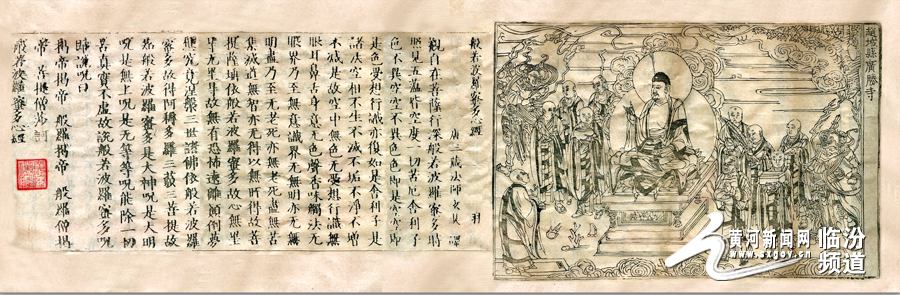 趙城縣廣勝寺
般若波羅蜜多心經
唐三藏法師玄奘 譯
觀自在菩薩行深般若波羅蜜多時
照見五蘊皆空度一切苦厄舍利子
色不異空空不異色色即是空空即
是色受想行識亦復如是舍利子是
諸法空相不生不滅不垢不淨不增
不減是故空中無色无受想行識無
眼耳鼻舌身意无色聲香味觸法无
眼界乃至無意識界无無明亦无無
明盡乃至无老死亦無老死盡無苦
集滅道無智亦无得以無所得故菩
提薩埵依般若波羅蜜多故心無罣
礙无罣礙故無有恐怖遠離顛倒夢
想究竟涅槃三世諸佛依般若波羅
蜜多故得阿耨多羅三藐三菩提故
知般若波羅蜜多是大神呪是大明
呪是無上呪是无等等呪能除一切
苦真實不虛故說般若波羅蜜多呪
即說呪曰
揭帝揭帝 般羅揭帝 般羅僧揭
帝 菩提僧莎訶
般若波羅蜜多心經
黄河新闻网
www.sxgov.cn
临汾
频道